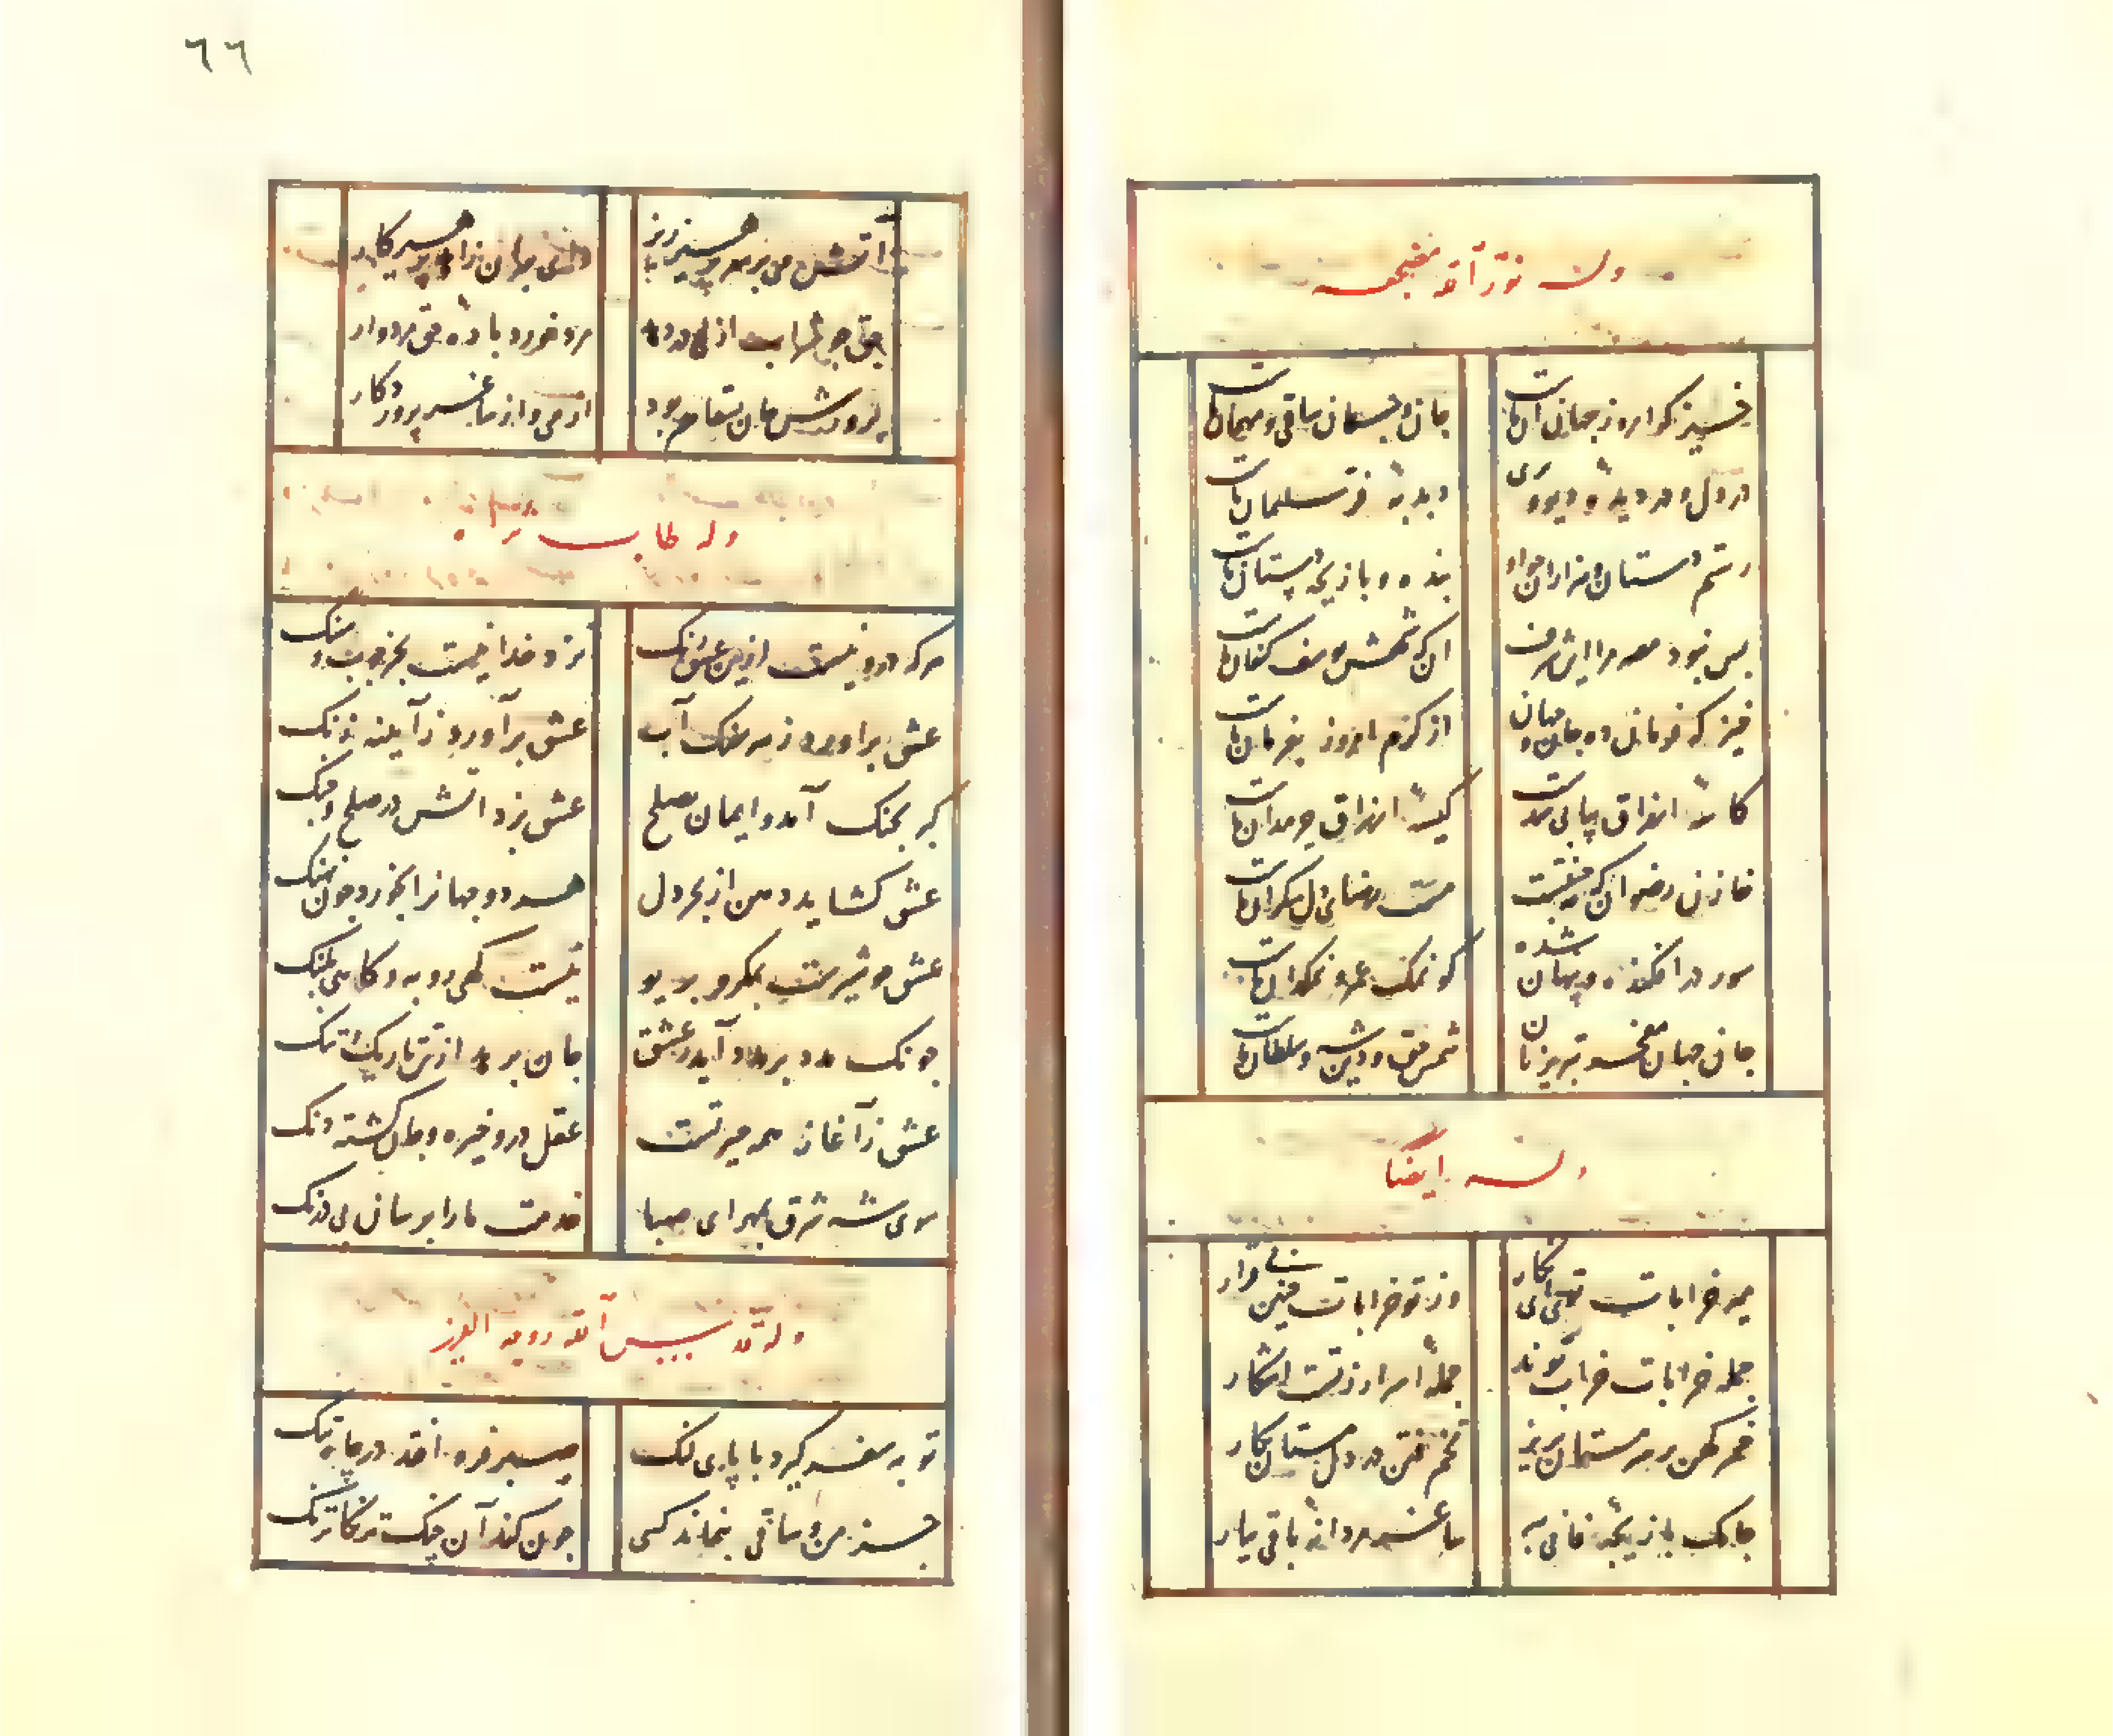 وله نور الله مضجعه
خیز کوامروز جهان ان ماست
جان و جهان ساقی و مهمان ماست
در دل و در دیدهٔ دیو و پری
دبدبهٔ فر سلیمان ماست
رستم دستان و هزاران چو او
بنده و بازیچهٔ دستان ماست
بس نبود مصر را این شرف
ان که شهش یوسف کنعان ماست
خیز که فرمان ده جان و جهان
از کرم امروز بفرمان ماست
کاسهٔ ارزاق پیاپی شدست
کیسهٔ ارزاق حرمدان ماست
خازن رضوان که جنتست
مست رضای دل رضوان ماست
شور درافکنده و پنهان شده
کو نمک عمر و نمکدان ماست
جان جهان مفخر تبریزیان
شمس حق و دین شه و سلطان ماست
وله ایضا
میر خرابات تویی ای نکار
وز تو خرابات چنین بی قرار
جمله خرابات خراب توند
جملهٔ اسرار ز تست اشکار
خمر کهن بر سر مستان بریز
تخم فتن در دل مستان بکار
جامک بازیچهٔ فانی
ساغر مردانهٔ باقی بیار
٦٦
حق چو شراب ازلی دردهد
مرد خورد بادهٔ حق مردوار
پرورش جان بسقاهم بود
از می و از ساغر پروردکار
وله طاب ثراه
هر که درو نیست ازین عشق رنک
نزد خدا نیست بجز چوب و سنک
عشق براورد ز هر سنک آب
عشق برآورد ز آینه زنک
کفر بجنک آمد و ایمان بصلح
عشق بزد اتش در صلح و جنک
عشق کشاید دهن از بحر دل
هر دو جهانرا بخورد چون نهنک
عشق چو شیرست نه مکر و نه ریو
نیست کهی روبه و کاهی پلنک
چونک مدد بر مدد آید ز عشق
جان برهد از تن تاریک و تنک
عشق ز آغاز همه حیرتست
عقل درو خیره و جان کشته دنک
سوی شه شرق ببر ای صبا
خدمت ما را برسان بی درنک
وله قدس الله روحه العزیز
توبه سفر کیرد با پای لنک
صبر فرو افتد در چاه تنک
جز من و ساقی بنماند کسی
چون کند آن چنک ترنکا ترنک